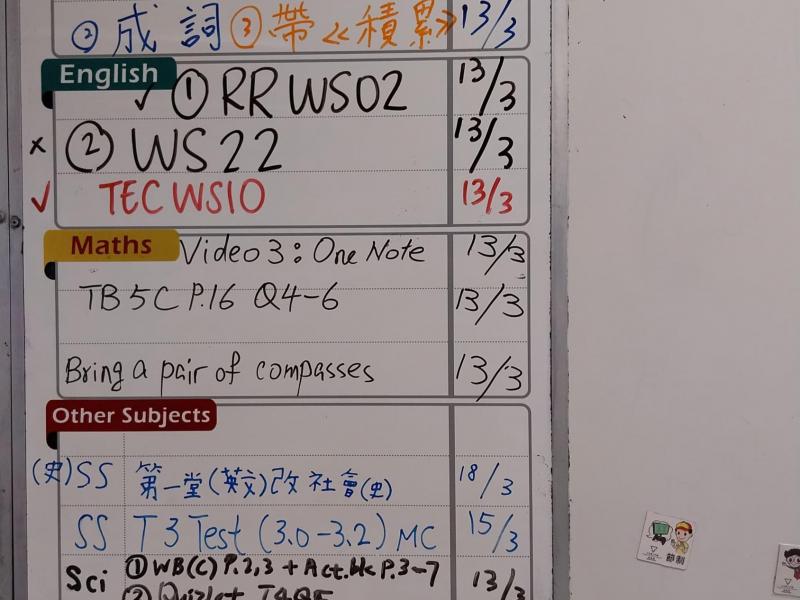 ② 成詞 ③ 帶《積累》 13/3
English
✓ ① RR WS02 13/3
x ② WS 22 13/3
✓ TEC WS10 13/3
Maths
Video 3: One Note 13/3
TB 5C P.16 Q4-6 13/3
Bring a pair of compasses 13/3
Other Subjects
(史) SS 第一堂(英文)改社會(史) 18/3
SS T3 Test (3.0-3.2) MC 15/3
Sci ① WB(C) P.2,3 + Act.bk P.3-7 13/3
② Quizlet
節制